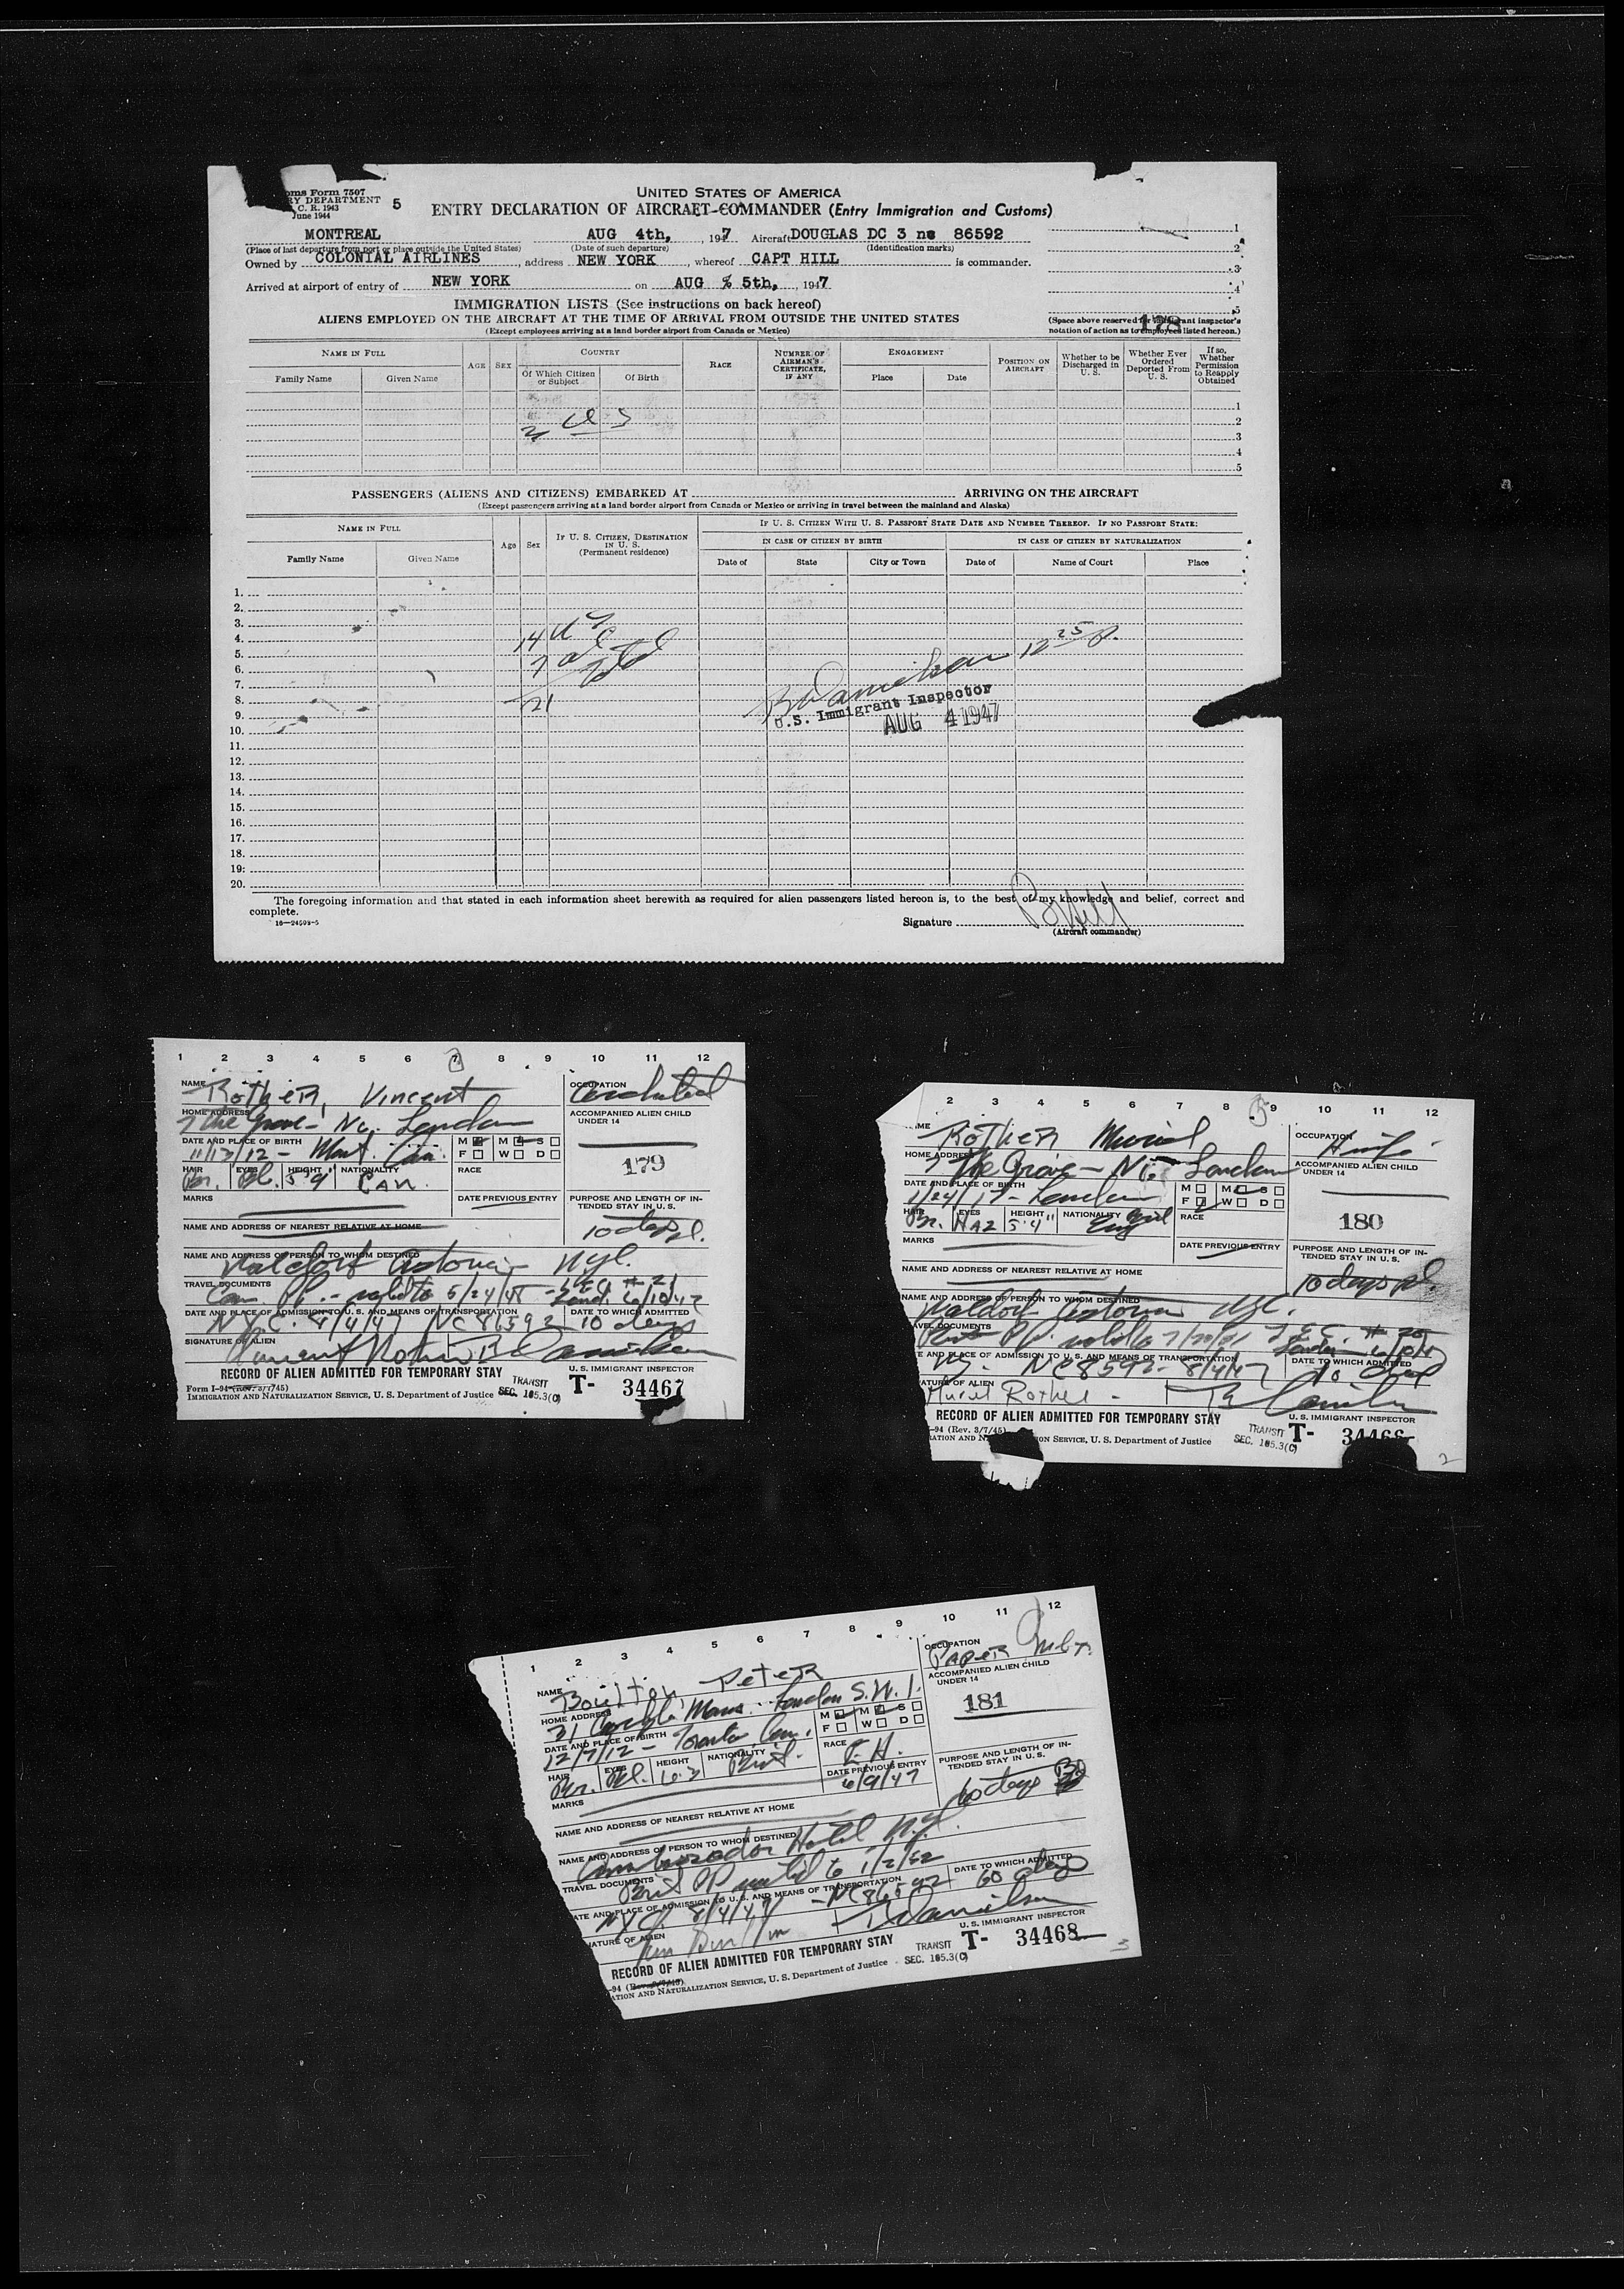 oms Form 7507
RY DEPARTMENT
C. R. 1943
June 1944
5
UNITED STATES OF AMERICA
ENTRY DECLARATION OF AIRCRAFT COMMANDER (Entry Immigration and Customs)
MONTREAL AUG 4th, 1947 Aircraft DOUGLAS DC 3 nc 86592
(Place of last departure from port or place outside the United States) (Date of such departure) (Identification marks)
Owned by COLONIAL AIRLINES, address NEW YORK, whereof CAPT HILL is commander.
Arrived at airport of entry of NEW YORK on AUG 5th, 1947
IMMIGRATION LISTS (See instructions on back hereof)
ALIENS EMPLOYED ON THE AIRCRAFT AT THE TIME OF ARRIVAL FROM OUTSIDE THE UNITED STATES
(Except employees arriving at a land border airport from Canada or Mexico)
1
2
3
4
5
178
(Space above reserved for immigrant inspector's
notation of action as to employees listed hereon.)
NAME IN FULL
Family Name Given Name
AGE SEX
COUNTRY
Of Which Citizen or Subject Of Birth
RACE
NUMBER OF AIRMAN'S CERTIFICATE, IF ANY
ENGAGEMENT
Place Date
POSITION ON AIRCRAFT
Whether to be Discharged in U. S.
Whether Ever Ordered Deported From U. S.
If so, Whether Permission to Reapply Obtained
1
2
3
4
5
PASSENGERS (ALIENS AND CITIZENS) EMBARKED AT ARRIVING ON THE AIRCRAFT
(Except passengers arriving at a land border airport from Canada or Mexico or arriving in travel between the mainland and Alaska)
NAME IN FULL
Family Name Given Name
Age Sex
IF U. S. CITIZEN, DESTINATION IN U. S. (Permanent residence)
IF U. S. CITIZEN WITH U. S. PASSPORT STATE DATE AND NUMBER THEREOF. IF NO PASSPORT STATE:
IN CASE OF CITIZEN BY BIRTH IN CASE OF CITIZEN BY NATURALIZATION
Date of State City or Town Date of Name of Court Place
1.
2.
3.
4. 14 US
5. 7 al
6. Total
7.
8. 21
9.
10.
11.
12.
13.
14.
15.
16.
17.
18.
19.
20.
B Danielson 12 25 P.
U.S. Immigrant Inspector
AUG 4 1947
The foregoing information and that stated in each information sheet herewith as required for alien passengers listed hereon is, to the best of my knowledge and belief, correct and
complete.
16—24509-5
Signature
(Aircraft commander)
1 2 3 4 5 6 7 8 9 10 11 12
NAME Rother, Vincent
OCCUPATION Architect
HOME ADDRESS 7 The Grove - No. London
ACCOMPANIED ALIEN CHILD UNDER 14
DATE AND PLACE OF BIRTH 11/13/12 - Mont. Can.
M M S
F W D
179
HAIR Br. EYES Bl. HEIGHT 5'9" NATIONALITY Can. RACE
MARKS DATE PREVIOUS ENTRY
PURPOSE AND LENGTH OF INTENDED STAY IN U. S.
10 days pl.
NAME AND ADDRESS OF NEAREST RELATIVE AT HOME
NAME AND ADDRESS OF PERSON TO WHOM DESTINED
Waldorf Astoria NYC.
TRAVEL DOCUMENTS
Can PP valid to 5/24/48
DATE AND PLACE OF ADMISSION TO U. S. AND MEANS OF TRANSPORTATION DATE TO WHICH ADMITTED
NYC. 8/4/47 NC 86592 10 days
SIGNATURE OF ALIEN
Vincent Rother B Danielson
RECORD OF ALIEN ADMITTED FOR TEMPORARY STAY
U. S. IMMIGRANT INSPECTOR
Form I-94 (Rev. 3/7/45)
IMMIGRATION AND NATURALIZATION SERVICE, U. S. Department of Justice
TRANSIT
SEC. 105.3(C)
T- 34467
1
2 3 4 5 6 7 8 9 10 11 12
NAME Rother Muriel
OCCUPATION
HOME ADDRESS 7 The Grove - No. London
ACCOMPANIED ALIEN CHILD UNDER 14
DATE AND PLACE OF BIRTH London
M M S
F W D
180
HAIR Br. EYES Haz HEIGHT 5'4" NATIONALITY RACE
MARKS DATE PREVIOUS ENTRY
PURPOSE AND LENGTH OF INTENDED STAY IN U. S.
10 days pl.
NAME AND ADDRESS OF NEAREST RELATIVE AT HOME
NAME AND ADDRESS OF PERSON TO WHOM DESTINED
Waldorf Astoria NYC.
VEL DOCUMENTS
TE AND PLACE OF ADMISSION TO U. S. AND MEANS OF TRANSPORTATION DATE TO WHICH ADMITTED
NC8592 - 8/4/47 10 days
ATURE OF ALIEN
Muriel Rother
RECORD OF ALIEN ADMITTED FOR TEMPORARY STAY
U. S. IMMIGRANT INSPECTOR
-94 (Rev. 3/7/45)
RATION AND N ION SERVICE, U. S. Department of Justice
TRANSIT
SEC. 105.3(C)
T- 34466
2
1 2 3 4 5 6 7 8 9 10 11 12
NAME Boulton, Peter
OCCUPATION Paper
HOME ADDRESS London S.W.1.
ACCOMPANIED ALIEN CHILD UNDER 14
DATE AND PLACE OF BIRTH 12/7/12 - Toronto Can.
M M S
F W D
181
HAIR Br. EYES Bl. HEIGHT 6.2 NATIONALITY Brit. RACE
MARKS DATE PREVIOUS ENTRY 6/9/47
PURPOSE AND LENGTH OF INTENDED STAY IN U. S.
60 days
NAME AND ADDRESS OF NEAREST RELATIVE AT HOME
NAME AND ADDRESS OF PERSON TO WHOM DESTINED
Ambassador Hotel N.Y.
TRAVEL DOCUMENTS
Brit PP valid to 1/2/52
ATE AND PLACE OF ADMISSION TO U. S. AND MEANS OF TRANSPORTATION DATE TO WHICH ADMITTED
NYC. 8/4/47 - NC86592 60 days
NATURE OF ALIEN
B Danielson
RECORD OF ALIEN ADMITTED FOR TEMPORARY STAY
U. S. IMMIGRANT INSPECTOR
-94 (Rev. 3/7/45)
ATION AND NATURALIZATION SERVICE, U. S. Department of Justice
TRANSIT
SEC. 105.3(C)
T- 34468
3